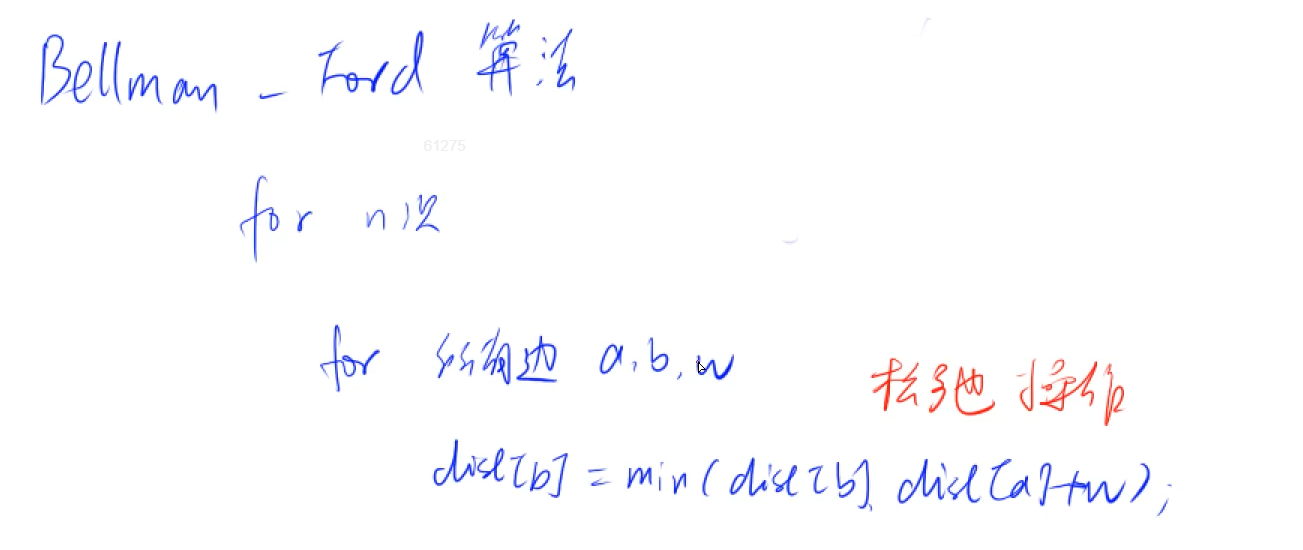 Bellman - Ford 算法
61275
for n次
for 所有边 a,b,w
松弛操作
dist[b] = min(dist[b], dist[a]+w);